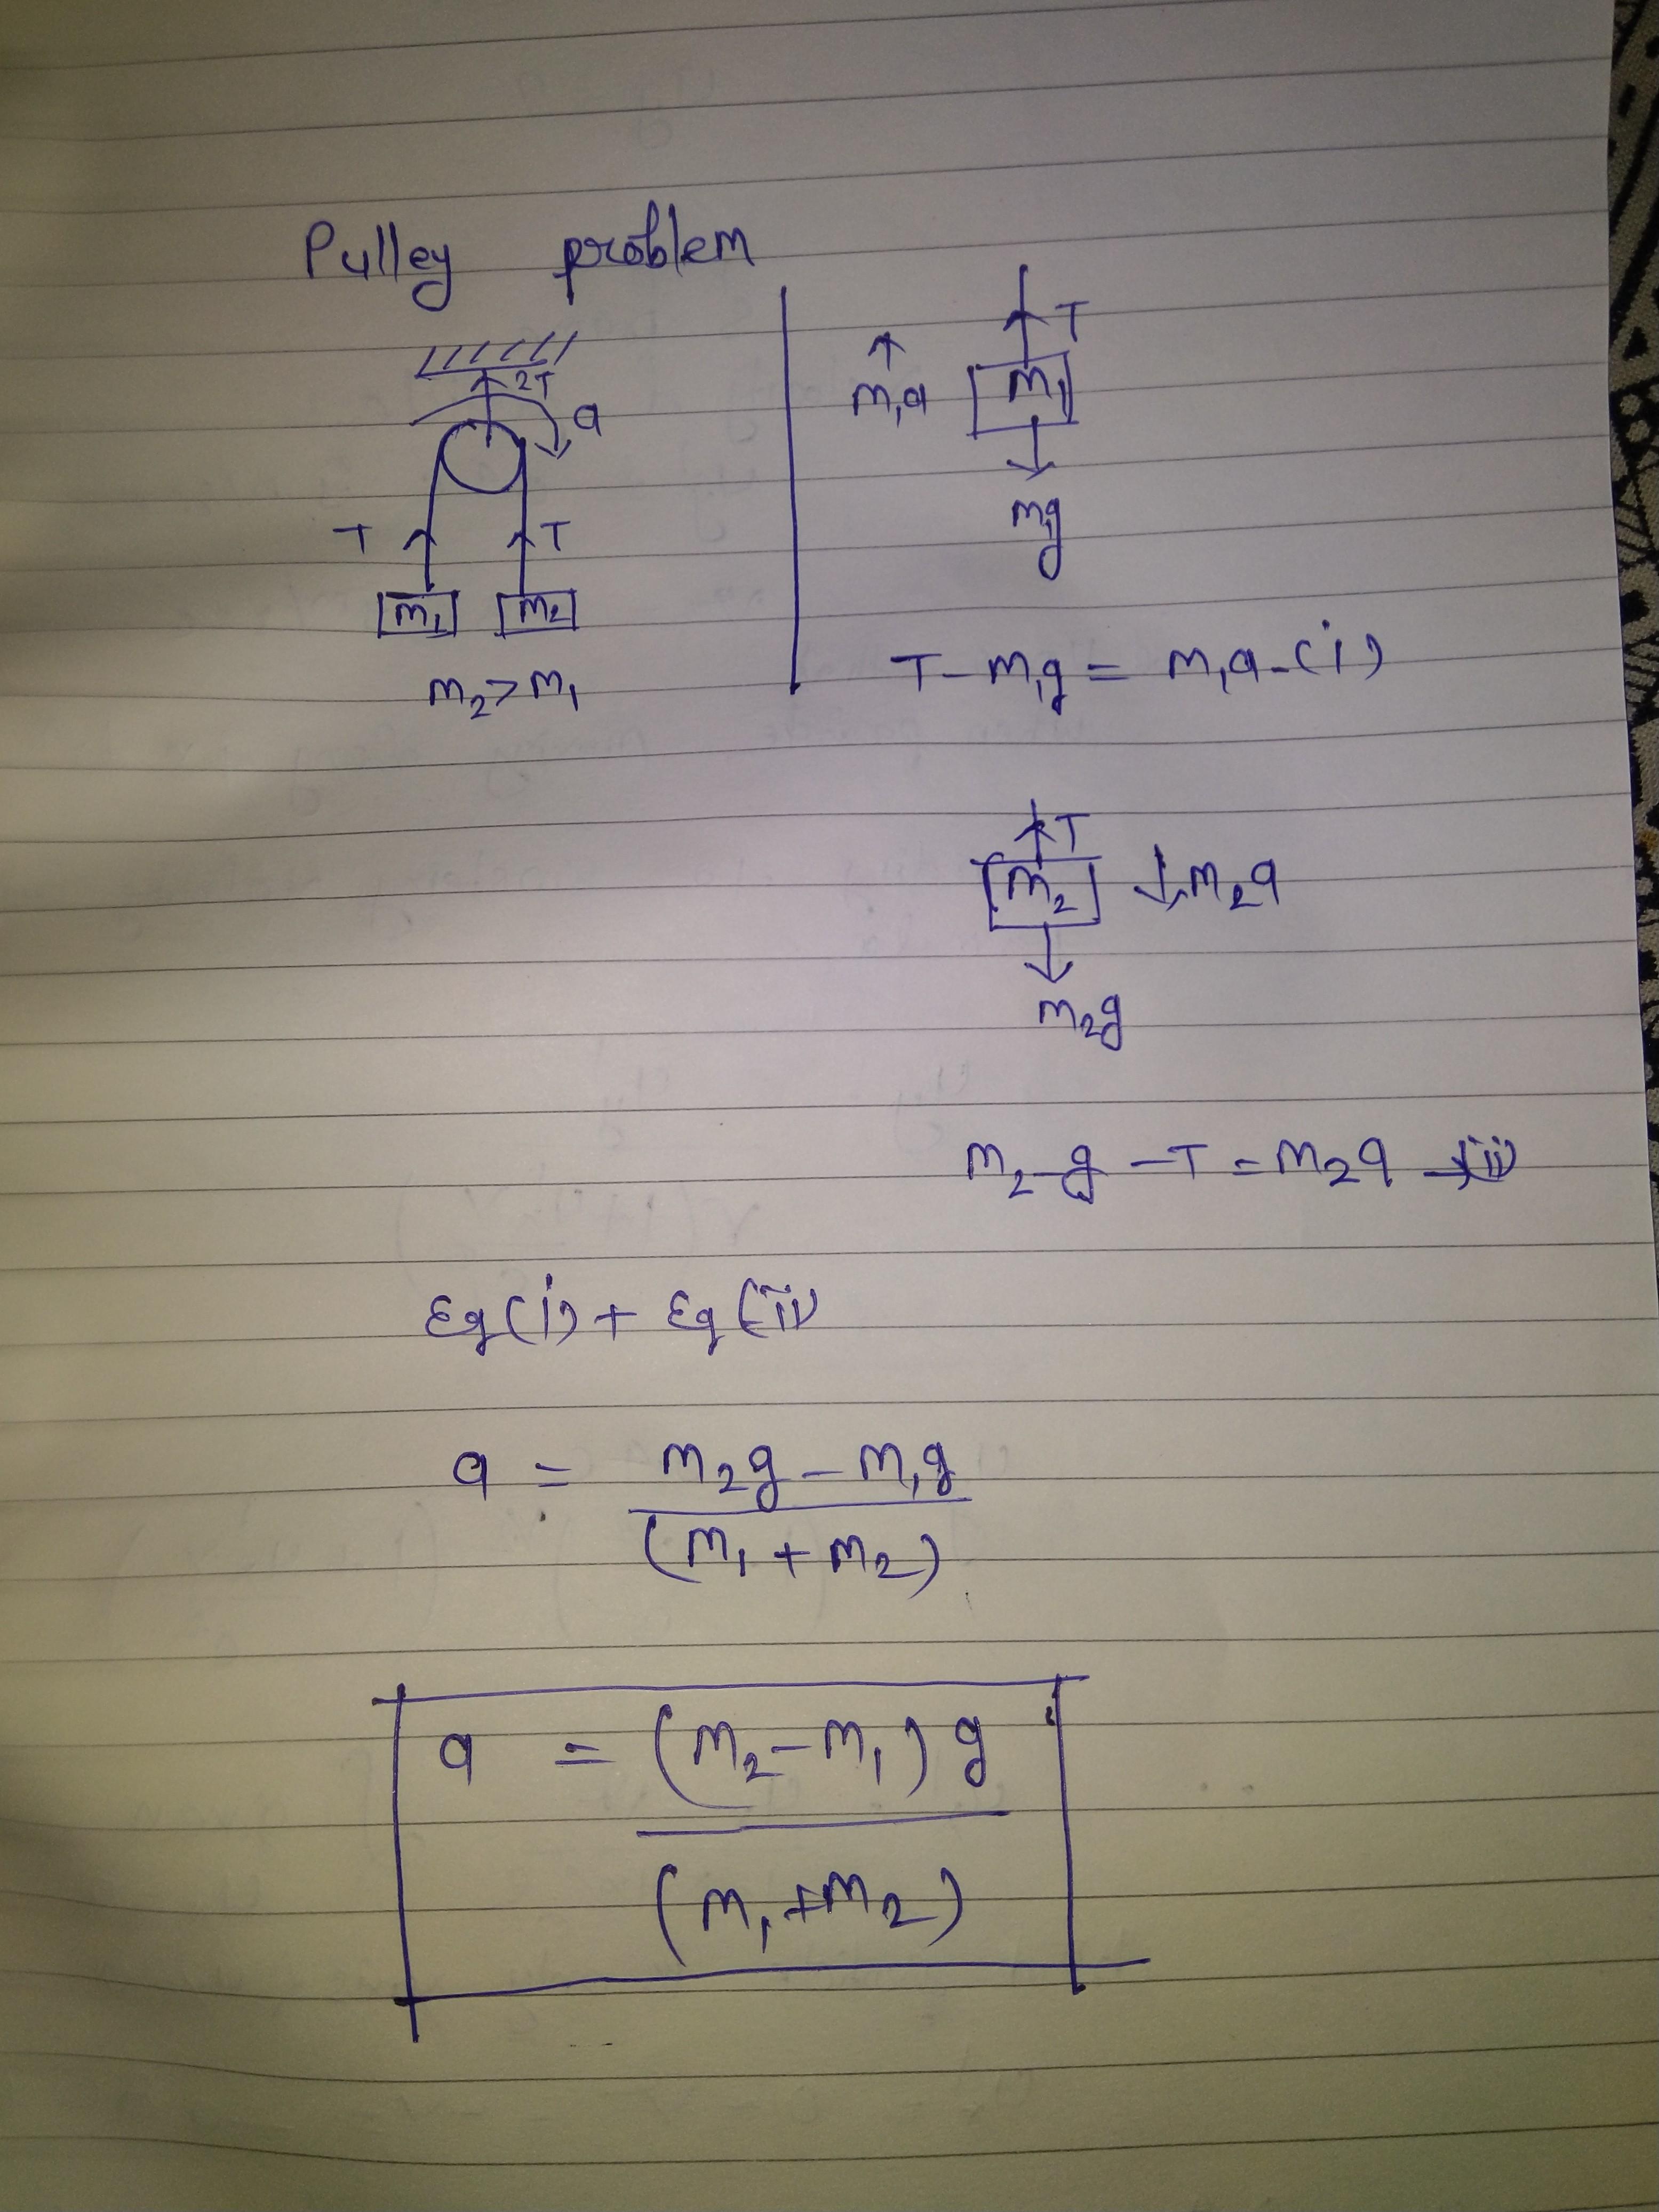 Pulley problem
2T
a
T T
m₁ m₂
m₂>m₁
T
m₁a m₁
m₁g
T-m₁g = m₁a-(i)
T
m₂ m₂a
m₂g
m₂g -T = m₂a -(ii)
Eq(i)+ Eq(ii)
a = m₂g-m₁g
(m₁+m₂)
a = (m₂-m₁) g
(m₁+m₂)